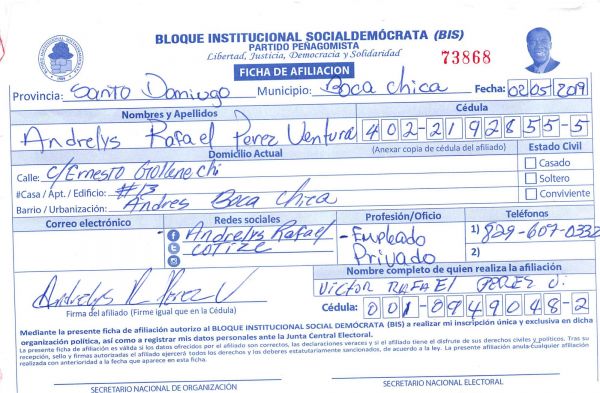 BLOQUE INSTITUCIONAL SOCIALDEMÓCRATA (BIS)
PARTIDO PEÑAGOMISTA
Libertad, Justicia, Democracia y Solidaridad
73868
FICHA DE AFILIACION
Provincia: Santo Domingo Municipio: Boca chica Fecha: 02/05/2019
Nombres y Apellidos Cédula
Andrelys Rafael Perez Ventura 402-2192855-5
Domicilio Actual (Anexar copia de cédula del afiliado) Estado Civil
Calle: C/Ernesto Casado
#Casa / Apt. / Edificio: #13 Soltero
Barrio / Urbanización: Andres Boca Chica Conviviente
Correo electrónico Redes sociales Profesión/Oficio Teléfonos
Andrelys Rafael - Empleado 1) 829-607-0332
COTIZE Privado 2)
Nombre completo de quien realiza la afiliación
Andrelys R Perez V VICTOR RAFAEL PEREZ
Firma del afiliado (Firme igual que en la Cédula) Cédula: 001-0949048-2
Mediante la presente ficha de afiliación autorizo al BLOQUE INSTITUCIONAL SOCIAL DEMÓCRATA (BIS) a realizar mi inscripción única y exclusiva en dicha
organización política, así como a registrar mis datos personales ante la Junta Central Electoral.
La presente afiliación es válida si los datos ofrecidos por el afiliado son correctos, las declaraciones veraces y si el afiliado tiene el disfrute de sus derechos civiles y políticos. Tras su
recepción, sello y firmas autorizadas el afiliado ejercerá todos los derechos y los deberes estatutarios sancionados, de acuerdo a la ley. La presente afiliación anula cualquier afiliación
realizada con anterioridad a la fecha que aparece en esta ficha.
SECRETARIO NACIONAL DE ORGANIZACIÓN SECRETARIO NACIONAL ELECTORAL